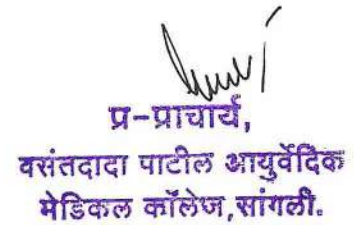 प्र-प्राचार्य,
वसंतदादा पाटील आयुर्वेदिक
मेडिकल कॉलेज,सांगली.